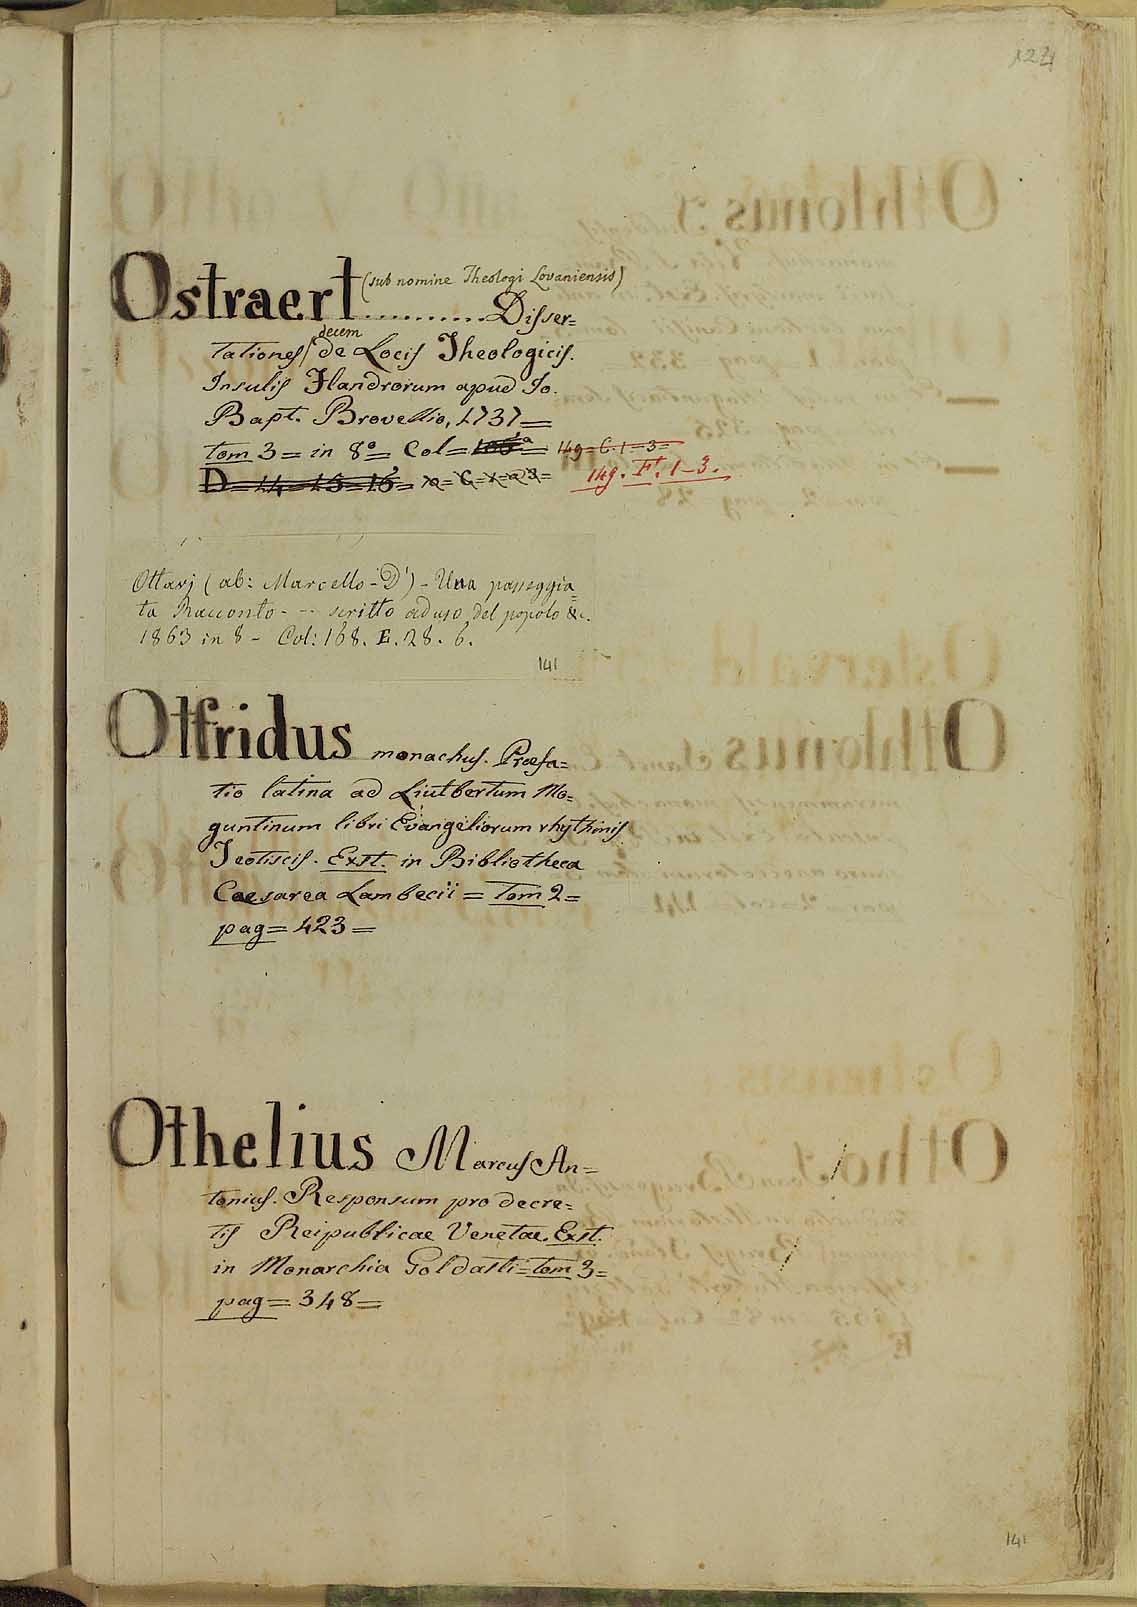 124
Ostraert (sub nomine Theologi Lovaniensis)
.......... Disser=
tationes decem de Locis Theologicis.
Insulis Flandrorum apud Jo.
Bapt. Brovellio, 1737=
tom 3= in 8º= Col= 149=C.1=3=
149. F. 1-3.
D=14=15=16=
Ottavj (ab: Marcello-D') - Una passeggia=
ta Racconto - -- scritto ad uso del popolo &c.
1863 in 8 - Col: 168. E. 28. 6.
141
Otfridus monachus. Præfa=
tio latina ad Liutbertum Mo=
guntinum libri Evangeliorum rhythmis
Teotiscis. Exst. in Bibliotheca
Caesarea Lambecii = tom 2=
pag= 423=
Othelius Marcus An=
tonius. Responsum pro decre=
tis Reipublicae Venetae. Exst.
in Monarchia Goldasti= tom 3=
pag= 348=
141